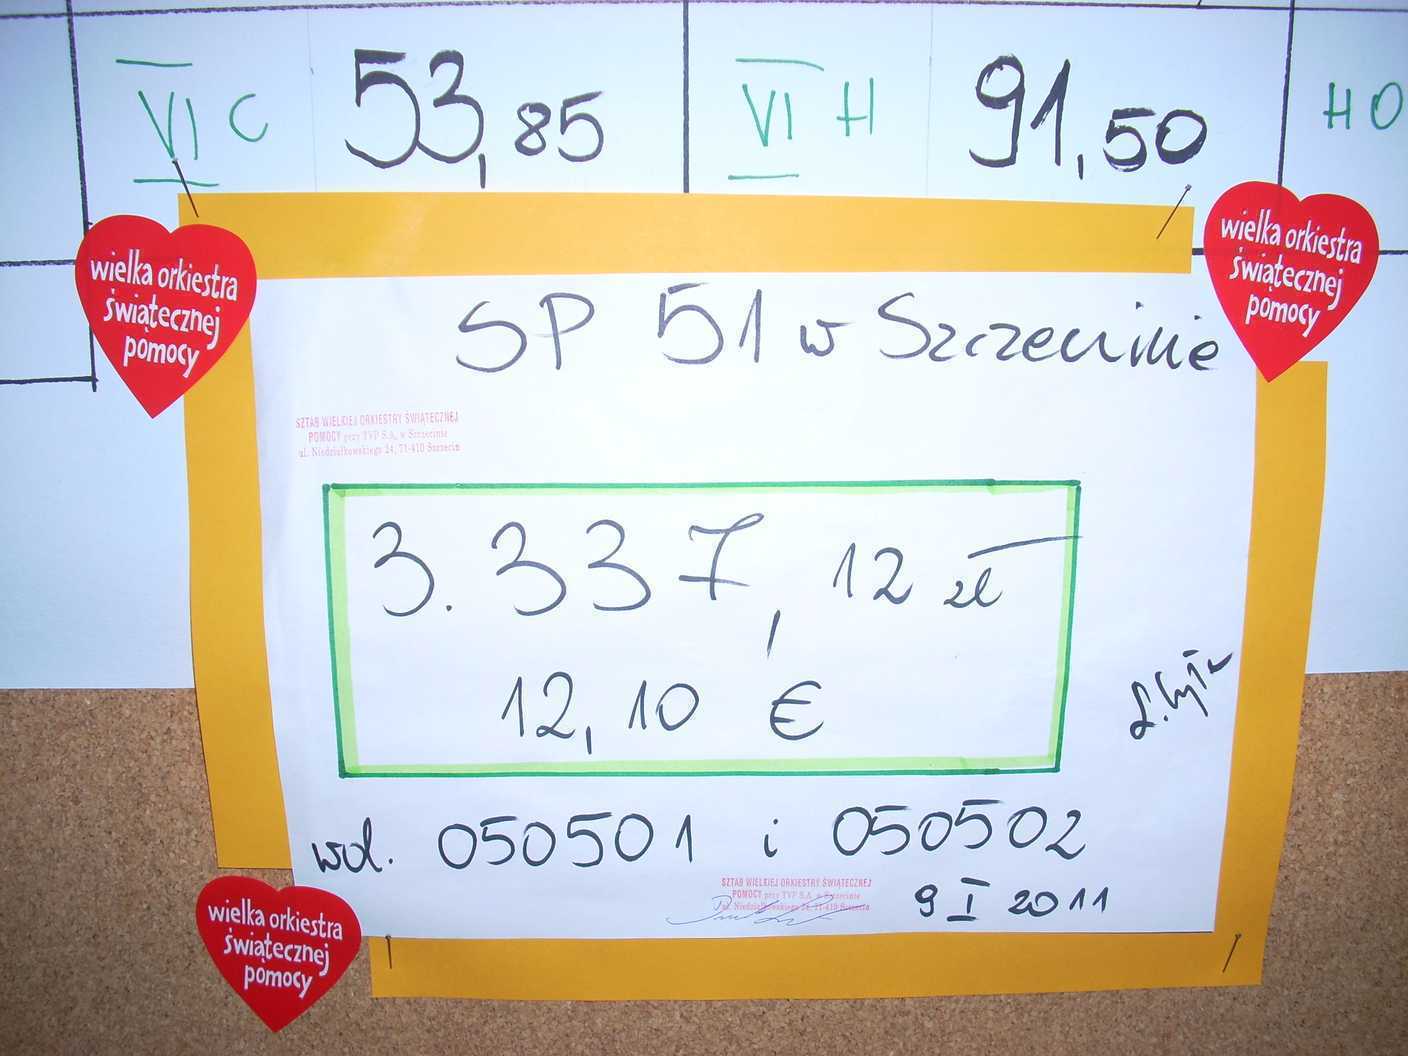 VI C 53,85 VI H 91,50 HO
wielka orkiestra
świątecznej
pomocy
wielka orkiestra
świątecznej
pomocy
SP 51 w Szczecinie
SZTAB WIELKIEJ ORKIESTRY ŚWIĄTECZNEJ
POMOCY przy TVP S.A. w Szczecinie
ul. Niedziałkowskiego 24, 71-410 Szczecin
3.337,12 zł
12,10 €
wol. 050501 i 050502
SZTAB WIELKIEJ ORKIESTRY ŚWIĄTECZNEJ
POMOCY przy TVP S.A. w Szczecinie
ul. Niedziałkowskiego 24, 71-410 Szczecin
9 I 2011
wielka orkiestra
świątecznej
pomocy